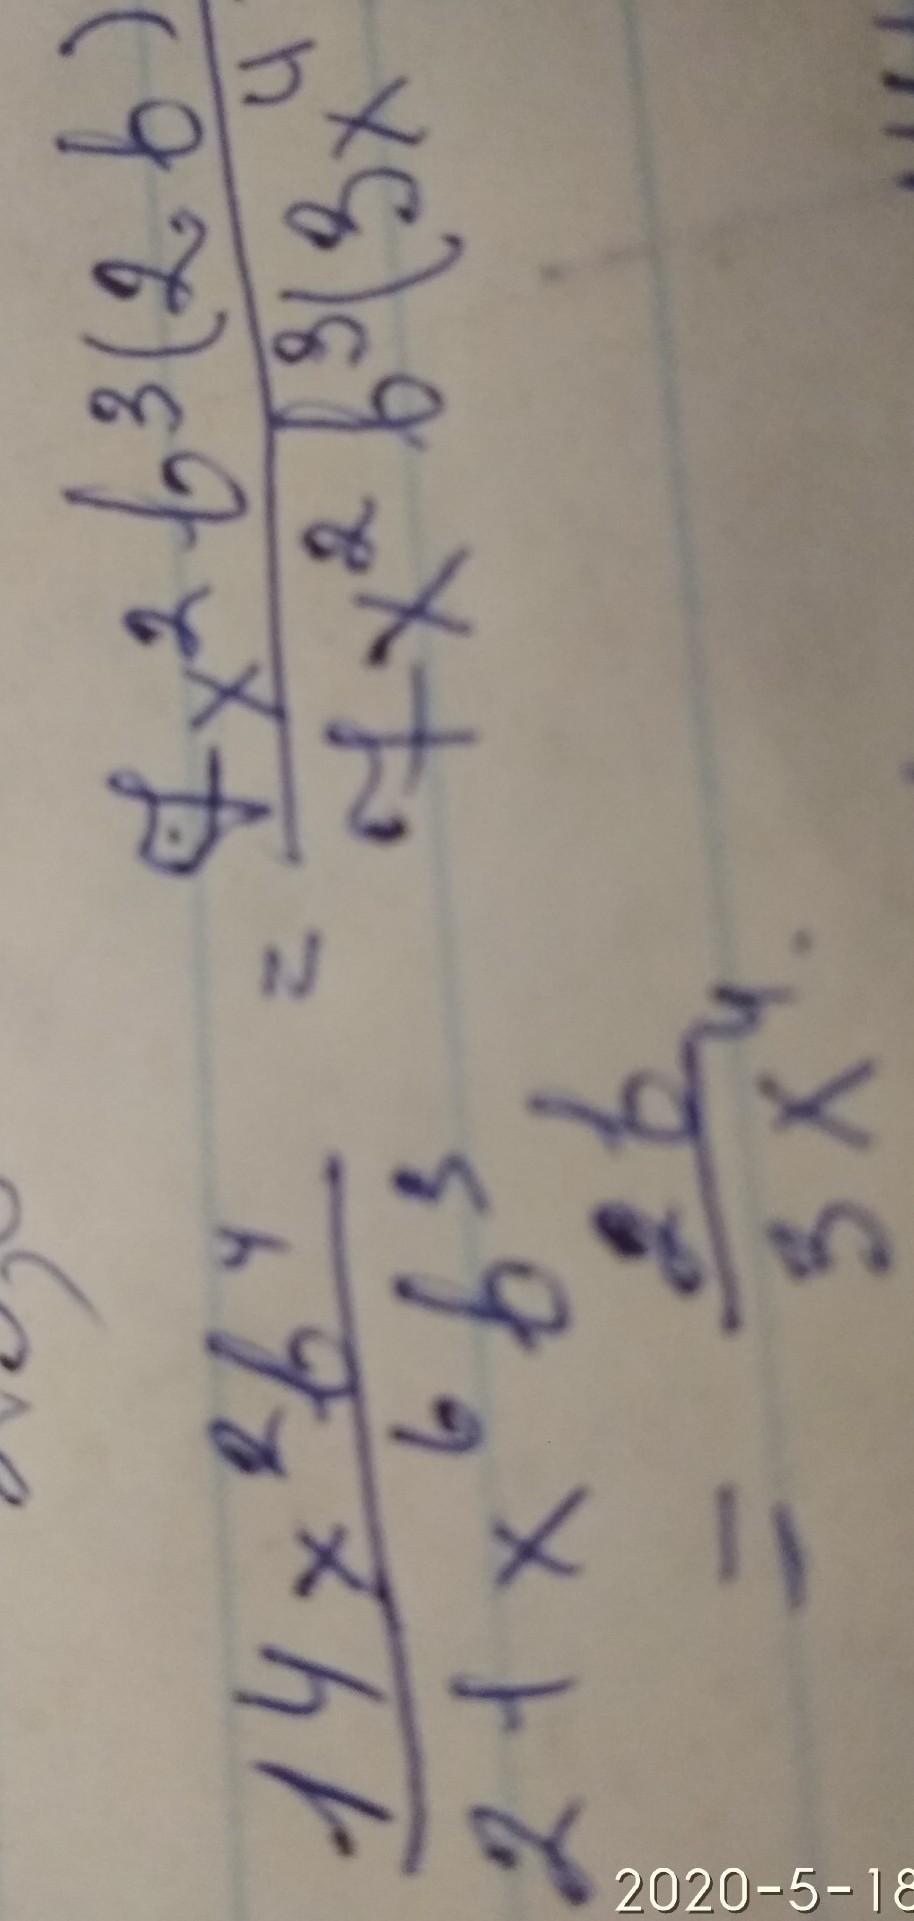 14x²b⁴ / 21x⁶b³ = 7x²b³(2b) / 7x²b³(3x⁴
= 2b / 3x⁴.
2020-5-18